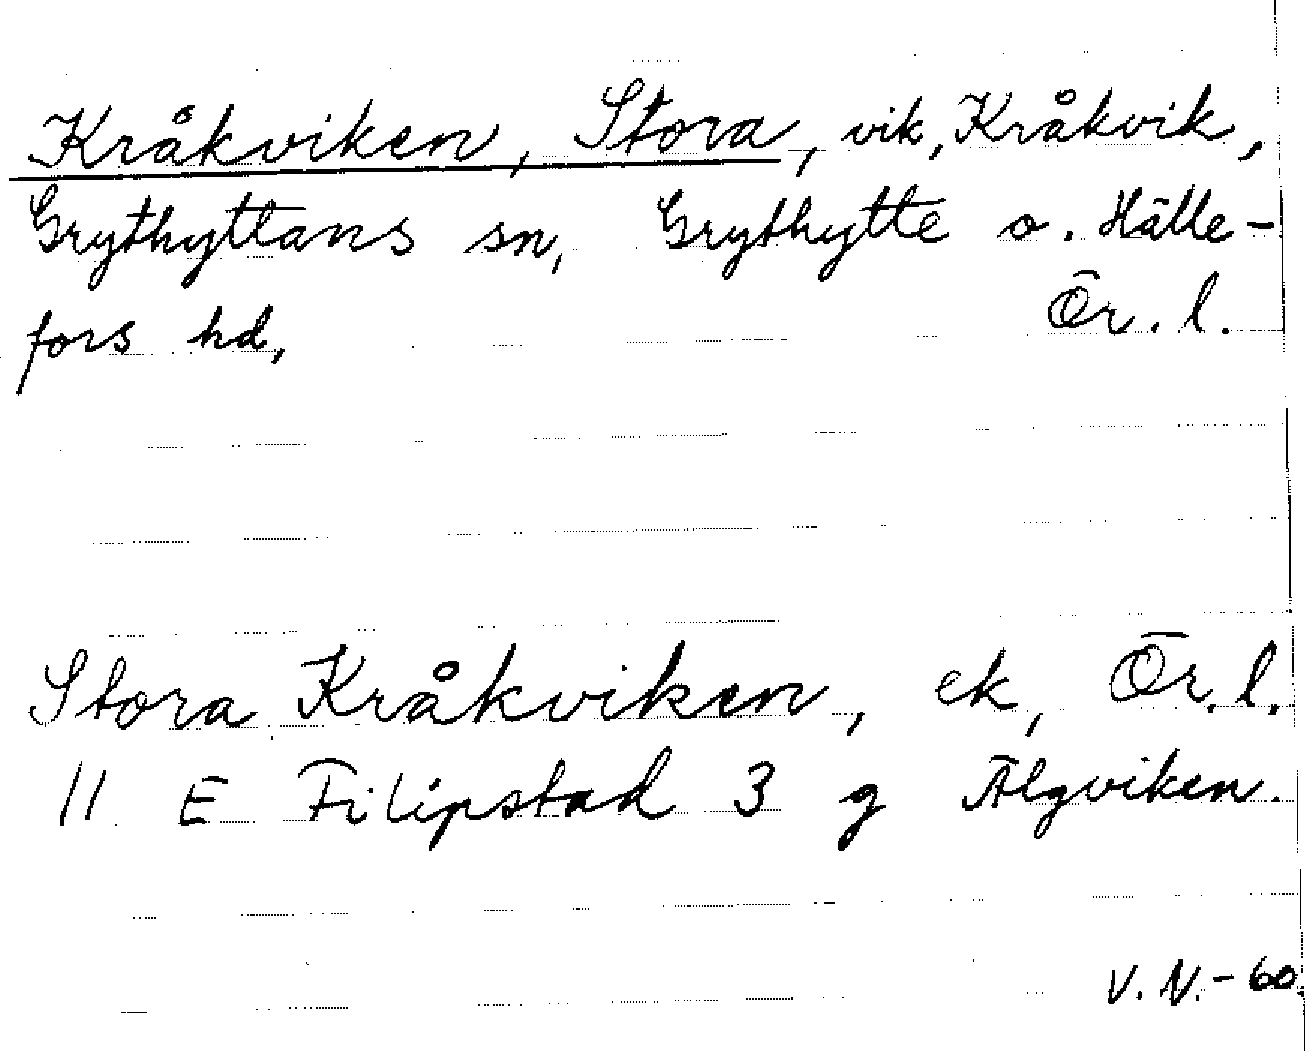 Kråkviken, Stora, vik, Kråkvik,
Grythyttans sn, Grythytte o. Hälle-
fors hd, Ör. l.
Stora Kråkviken, ek, Ör. l.
11 E Filipstad 3 g Älgviken.
V. N. - 60.